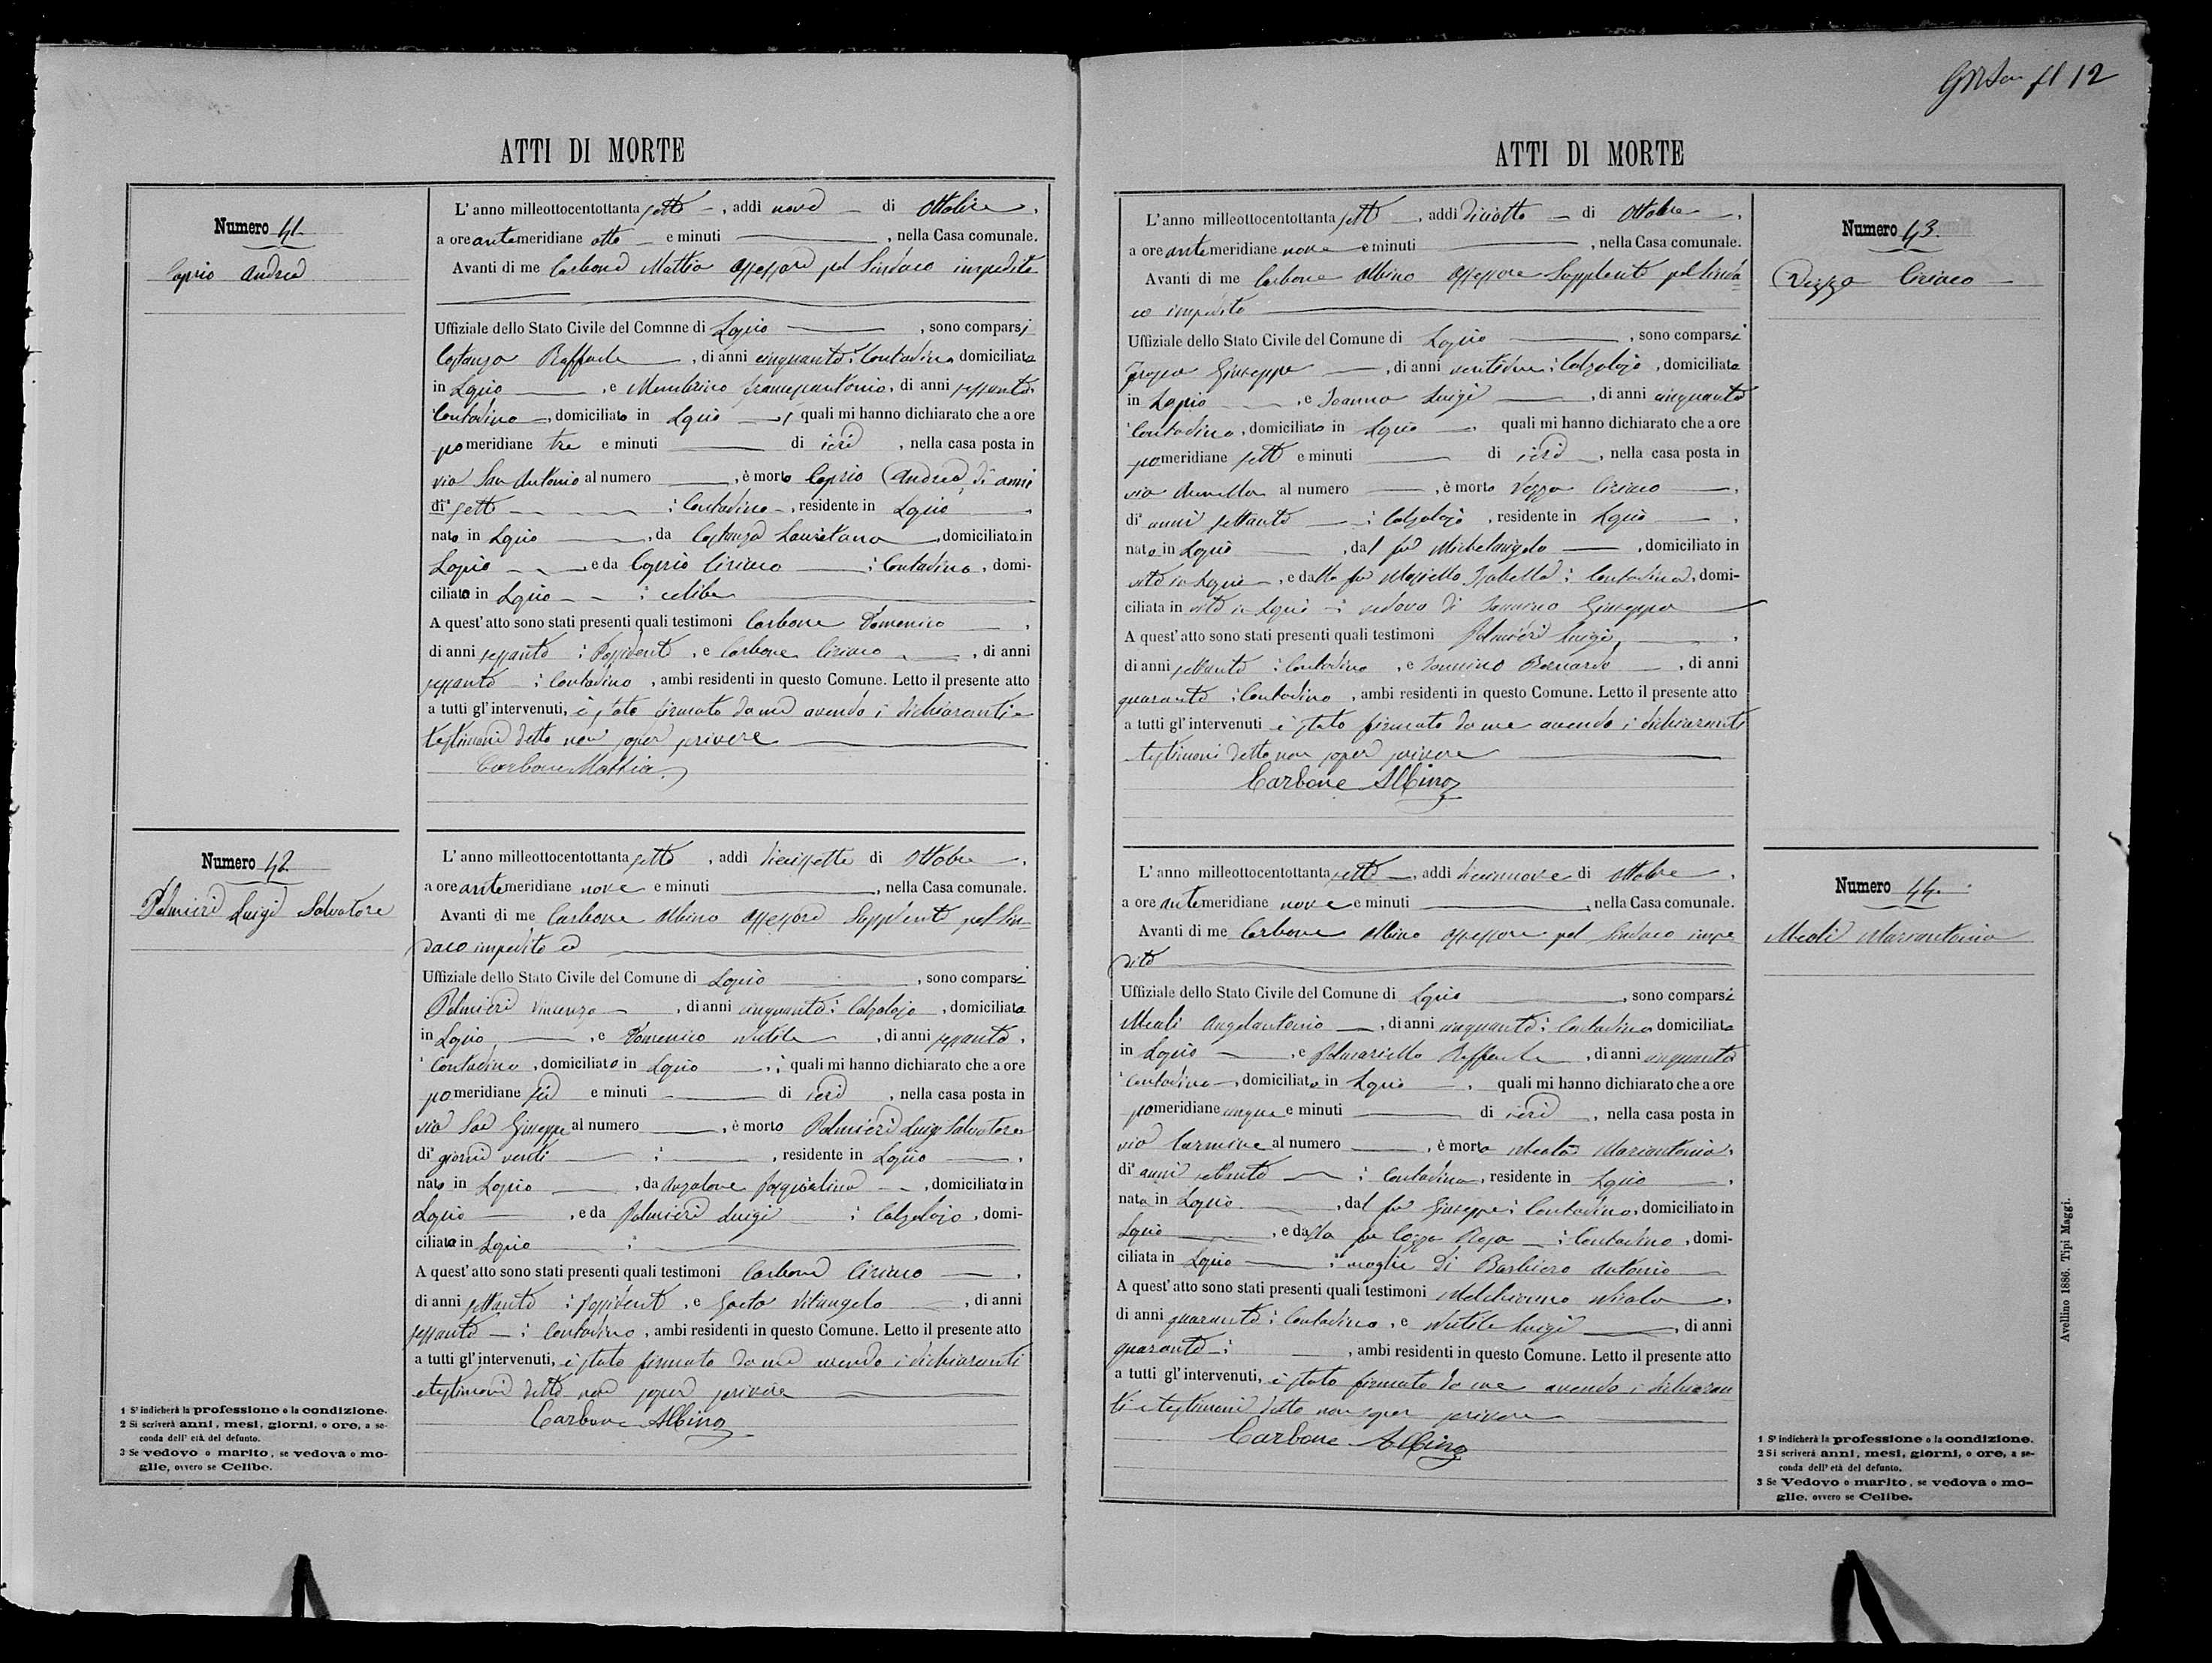 12
ATTI DI MORTE
Numero 41
Caprio Andrea
L'anno milleottocentottanta sette, addì nove di Ottobre,
a ore antemeridiane otto e minuti , nella Casa comunale.
Avanti di me Carbone Mattia Assessore pel Sindaco impedito
Uffiziale dello Stato Civile del Comnne di Lapio , sono comparsi
Costanza Raffaele , di anni cinquanta Contadino domiciliato
in Lapio , e Membrino Francescantonio, di anni sessanta
Contadino, domiciliato in Lapio , i quali mi hanno dichiarato che a ore
pomeridiane tre e minuti di ieri , nella casa posta in
via San Antonio al numero , è morto Caprio Andrea, di anni
di sette Contadino, residente in Lapio
nato in Lapio , da Costanza Lauretana, domiciliata in
Lapio e da Caprio Ciriaco Contadino, domi-
ciliato in Lapio celibe
A quest' atto sono stati presenti quali testimoni Carbone Domenico ,
di anni sessanta Possidente, e Carbone Ciriaco , di anni
sessanta Contadino, ambi residenti in questo Comune. Letto il presente atto
a tutti gl' intervenuti, è stato firmato da me avendo i dichiaranti e
testimoni detto non saper scrivere
Carbone Mattia
Numero 42
Palmieri Luigi Salvatore
L'anno milleottocentottanta sette, addì diecissette di Ottobre,
a ore antemeridiane nove e minuti , nella Casa comunale.
Avanti di me Carbone Albino Assessore Supplente pel Sin-
daco impedito
Uffiziale dello Stato Civile del Comune di Lapio , sono comparsi
Palmieri Vincenzo , di anni cinquanta Calzolajo, domiciliato
in Lapio, e Domenico Nutile , di anni sessanta,
Contadino, domiciliato in Lapio , i quali mi hanno dichiarato che a ore
pomeridiane sei e minuti di ieri , nella casa posta in
via San Giuseppe al numero , è morto Palmieri Luigi Salvatore
di giorni venti , residente in Lapio ,
nato in Lapio , da Anzalone Pasqualina , domiciliata in
Lapio , e da Palmieri Luigi Calzolajo, domi-
ciliato in Lapio
A quest' atto sono stati presenti quali testimoni Carbone Ciriaco ,
di anni settanta possidente, e Gaeta Vitangelo , di anni
sessanta Contadino, ambi residenti in questo Comune. Letto il presente atto
a tutti gl' intervenuti, è stato firmato da me avendo i dichiaranti
e testimoni detto non saper scrivere
Carbone Albino
1 S' indicherà la professione o la condizione.
2 Si scriverà anni, mesi, giorni, o ore, a se-
conda dell' età del defunto.
3 Se vedovo o marito, se vedova o mo-
glie, ovvero se Celibe.
ATTI DI MORTE
Numero 43
Vezza Ciriaco
L'anno milleottocentottanta sette, addì diciotto di Ottobre,
a ore antemeridiane nove e minuti , nella Casa comunale.
Avanti di me Carbone Albino Assessore Supplente pel Sinda
co impedito
Uffiziale dello Stato Civile del Comune di Lapio , sono comparsi
Giuseppe , di anni ventidue Calzolajo, domiciliato
in Lapio , e Ioanna Luigi , di anni cinquanta
Contadino, domiciliato in Lapio quali mi hanno dichiarato che a ore
pomeridiane sette e minuti di ieri , nella casa posta in
via al numero , è morto Vezza Ciriaco ,
di anni settanta Calzolajo, residente in Lapio ,
nato in Lapio , dal fu Michelangelo , domiciliato in
vita in Lapio, e dalla fu Isabella Contadina, domi-
ciliata in vita in Lapio vedovo di Giuseppa
A quest' atto sono stati presenti quali testimoni Palmieri Luigi,
di anni settanta Contadino, e Iannino Bernardo , di anni
quaranta Contadino, ambi residenti in questo Comune. Letto il presente atto
a tutti gl' intervenuti è stato firmato da me avendo i dichiaranti
testimoni detto non saper scrivere
Carbone Albino
Numero 44
Meoli Mariantonia
L'anno milleottocentottanta sette, addì diecinnove di Ottobre,
a ore antemeridiane nove e minuti , nella Casa comunale.
Avanti di me Carbone Albino assessore pel Sindaco impe
dito
Uffiziale dello Stato Civile del Comune di Lapio , sono comparsi
Meoli Angelantonio , di anni cinquanta Contadino domiciliato
in Lapio , e Palmariello Raffaele , di anni cinquanta
Contadino, domiciliato in Lapio , quali mi hanno dichiarato che a ore
pomeridiane cinque e minuti di ieri , nella casa posta in
via Carmine al numero , è morta Meola Mariantonia,
di anni settanta Contadina, residente in Lapio ,
nata in Lapio , dal fu Giuseppe Contadino, domiciliato in
Lapio , e dalla fu Cozza Rosa Contadina, domi-
ciliata in Lapio moglie di Barbiero Antonio
A quest' atto sono stati presenti quali testimoni Melchionno Nicola ,
di anni quaranta Contadino, e Nutile Luigi , di anni
quaranta , ambi residenti in questo Comune. Letto il presente atto
a tutti gl' intervenuti, è stato firmato da me avendo i dichiaran
ti e testimoni detto non saper scrivere
Carbone Albino
1 S' indicherà la professione o la condizione.
2 Si scriverà anni, mesi, giorni, o ore, a se-
conda dell' età del defunto.
3 Se Vedovo o marito, se vedova o mo-
glie, ovvero se Celibe.
Avellino 1886. Tipi Maggi.